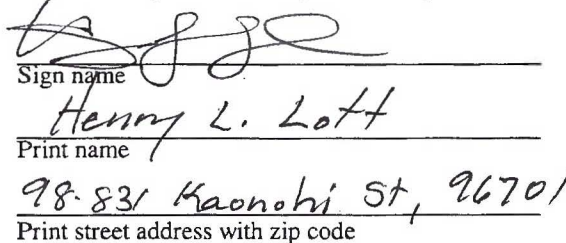 Sign name
Henny L. Lott
Print name
98-831 Kaonohi St, 96701
Print street address with zip code